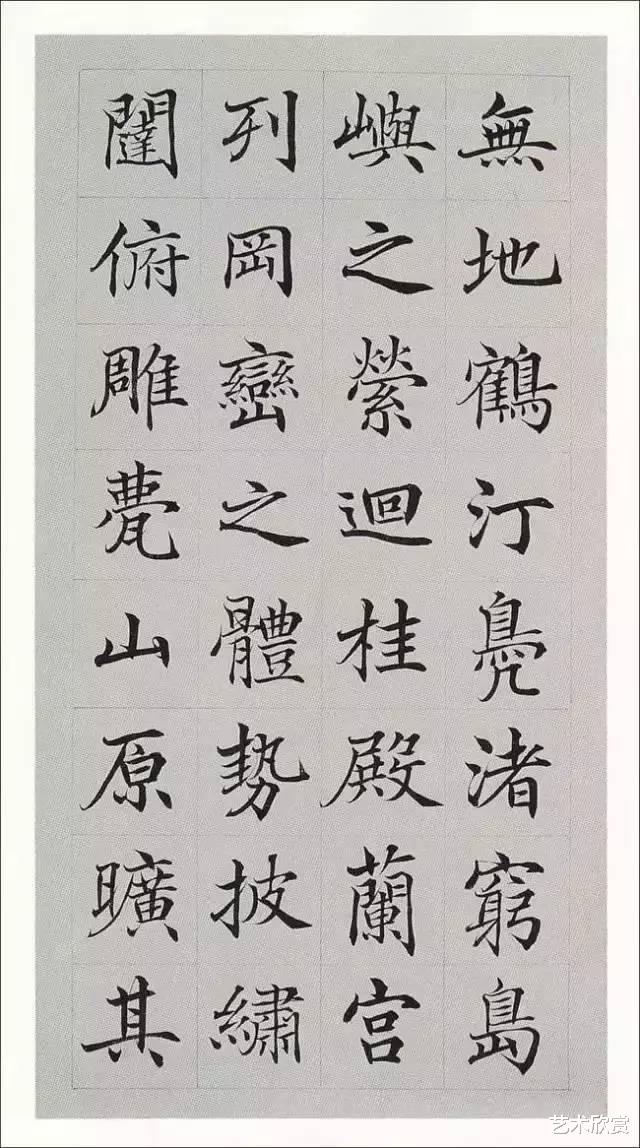 無地鶴汀鳧渚窮島
嶼之縈迴桂殿蘭宮
列岡巒之體勢披繡
闥俯雕甍山原曠其
艺术欣赏